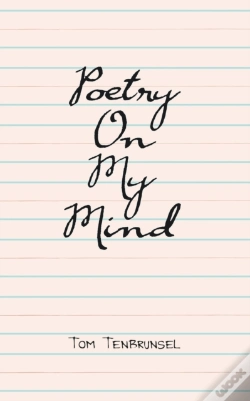 Poetry
On
My
Mind
Tom Tenbrunsel
wook